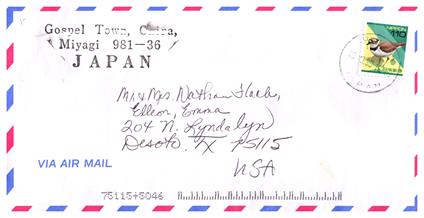 Gospel Town, China,
Miyagi 981-36
JAPAN
NIPPON
110
Mr & Mrs. Nathan
Emma
204 N. Lyndalyn
Desoto, TX 75115
USA
VIA AIR MAIL
75115+5046